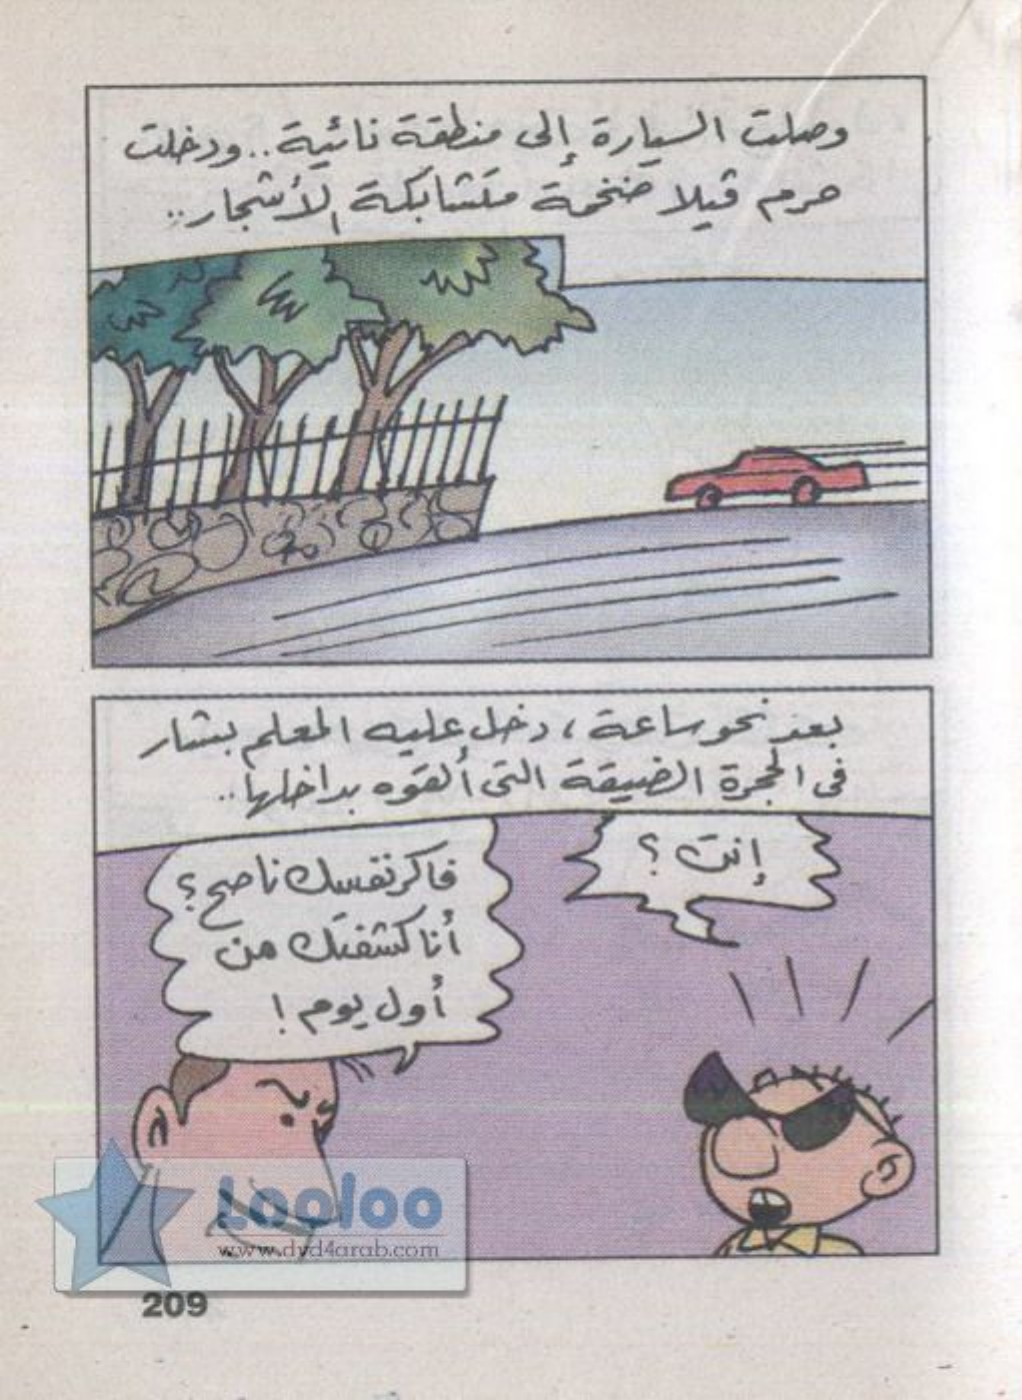 وصلت السيارة إلى منطقة نائية.. ودخلت
حرم ڤيلا ضخمة متشابكة الأشجار..
بعد نحو ساعة، دخل عليه المعلم بشار
فى الحجرة الضيقة التى ألقوه بداخلها..
إنت؟
فاكر نفسك ناصح؟
أنا كشفتك من
أول يوم!
Looloo
www.dvd4arab.com
209